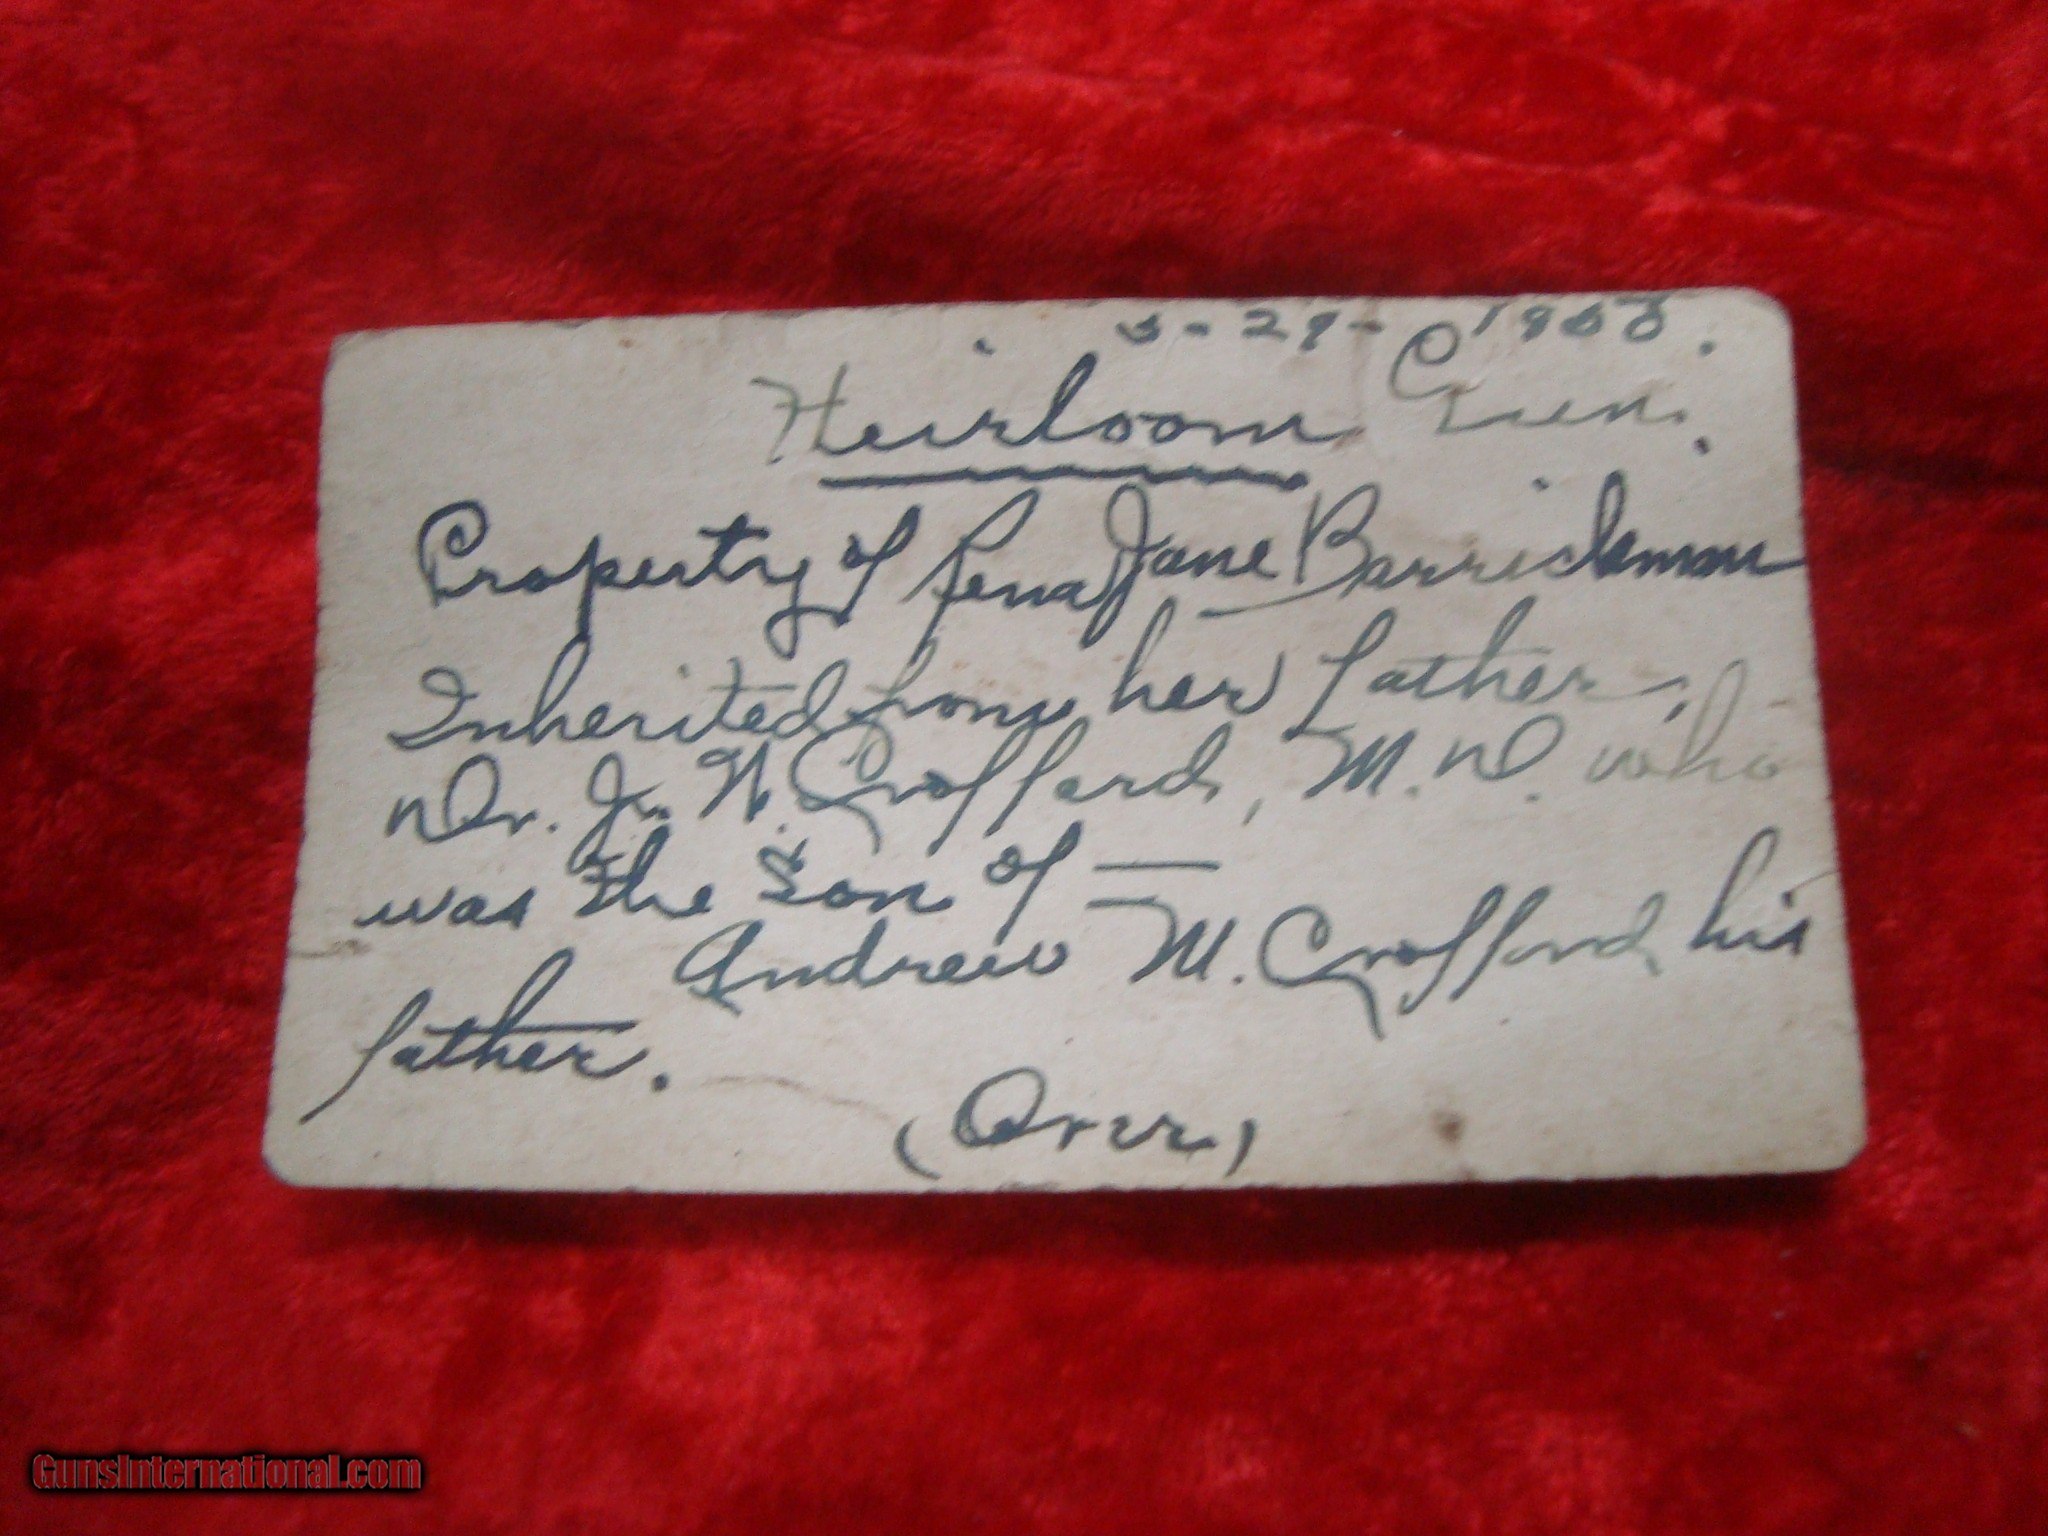 29-
Heirloom Gun.
Property of Rena Jane Barrickman
Inherited from her father,
Dr. J. N. Crofford, M.D. who
was the son of —
Andrew M. Crofford, his
father.
(Over)
GunsInternational.com